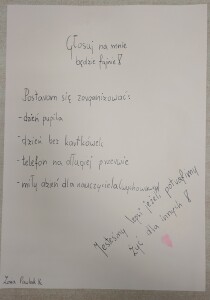 Głosuj na mnie
będzie fajnie
Postaram się zorganizować:
- dzień pupila
- dzień bez kartkówek
- telefon na długiej przerwie
- miły dzień dla nauczyciela/
Jesteśmy jeżeli potrafimy
żyć dla innych